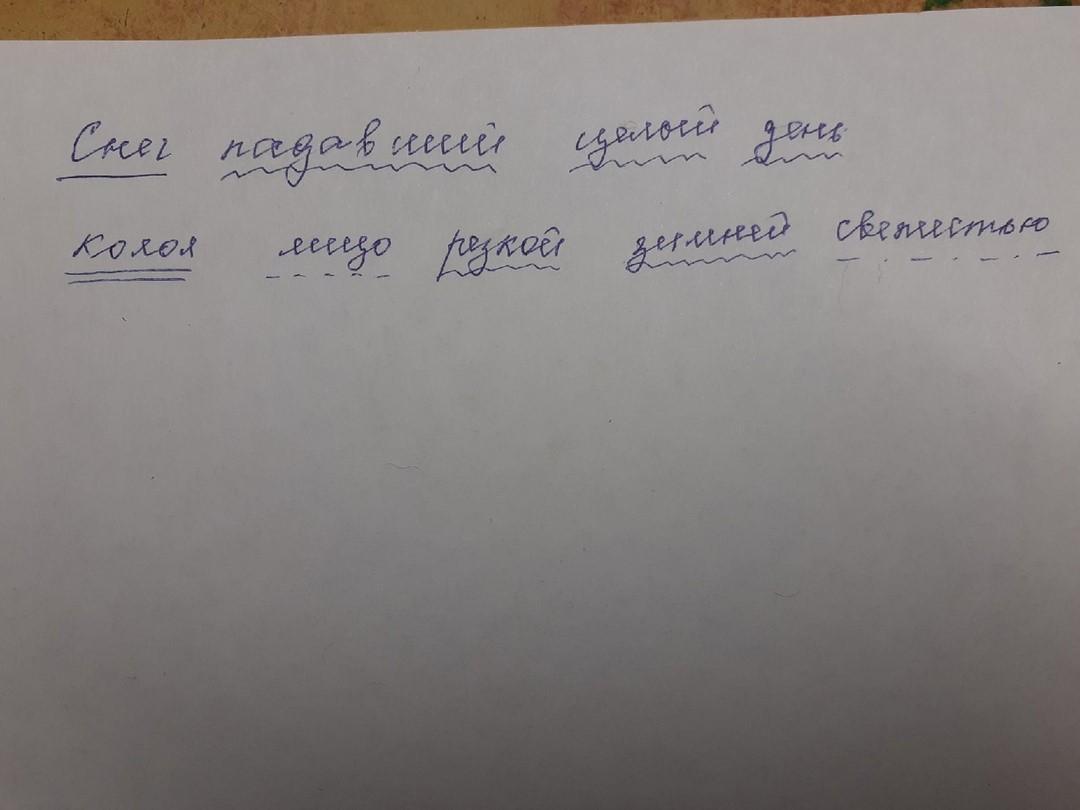 Снег падавший целый день
колол лицо резкой зимней свежестью